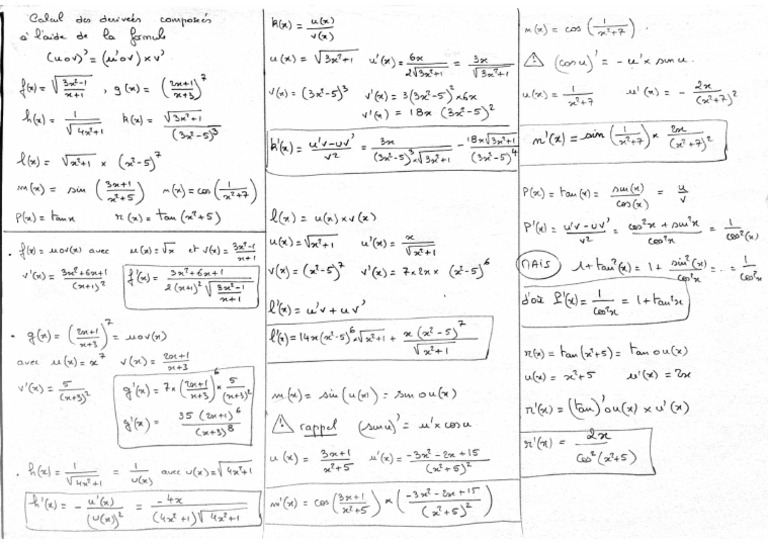 Calcul des derivées composées
à l'aide de la formule
(uov)' = (u'ov) × v'
f(x) = √((3x²-1)/(x+1)) , g(x) = ((2x+1)/(x+3))⁷
h(x) = 1/√(4x²+1) k(x) = √(3x²+1)/(3x²-5)³
l(x) = √(x²+1) × (x²-5)⁷
m(x) = sin ((3x+1)/(x²+5)) n(x) = cos (1/(x²+7))
P(x) = tan x r(x) = tan (x²+5)
• f(x) = uov(x) avec u(x) = √x et v(x) = (3x²-1)/(x+1)
v'(x) = (3x²+6x+1)/(x+1)² f'(x) = (3x²+6x+1)/(2(x+1)² √((3x²-1)/(x+1)))
• g(x) = ((2x+1)/(x+3))⁷ = uov(x)
avec u(x) = x⁷ v(x) = (2x+1)/(x+3)
v'(x) = 5/(x+3)² g'(x) = 7 × ((2x+1)/(x+3))⁶ × 5/(x+3)²
g'(x) = 35 (2x+1)⁶/(x+3)⁸
• h(x) = 1/√(4x²+1) = 1/u(x) avec u(x) = √(4x²+1)
h'(x) = - u'(x)/(u(x))² = -4x/((4x²+1)√(4x²+1))
k(x) = u(x)/v(x)
u(x) = √(3x²+1) u'(x) = 6x/(2√(3x²+1)) = 3x/√(3x²+1)
v(x) = (3x²-5)³ v'(x) = 3(3x²-5)² × 6x
v'(x) = 18x (3x²-5)²
k'(x) = (u'v-uv')/v² = 3x/((3x²-5)³ × √(3x²+1)) - 18x√(3x²+1)/(3x²-5)⁴
l(x) = u(x) × v(x)
u(x) = √(x²+1) u'(x) = x/√(x²+1)
v(x) = (x²-5)⁷ v'(x) = 7 × 2x × (x²-5)⁶
l'(x) = u'v + uv'
l'(x) = 14x(x²-5)⁶ × √(x²+1) + x (x²-5)⁷/√(x²+1)
m(x) = sin (u(x)) = sin o u(x)
⚠ rappel (sin u)' = u' × cos u
u(x) = (3x+1)/(x²+5) u'(x) = (-3x²-2x+15)/(x²+5)²
m'(x) = cos ((3x+1)/(x²+5)) × ((-3x²-2x+15)/(x²+5)²)
n(x) = cos (1/(x²+7))
⚠ (cos u)' = -u' × sin u.
u(x) = 1/(x²+7) u'(x) = - 2x/(x²+7)²
n'(x) = sin (1/(x²+7)) × 2x/(x²+7)²
P(x) = tan(x) = sin(x)/cos(x) = u/v
P'(x) = (u'v-uv')/v² = (cos²x + sin²x)/cos²x = 1/cos²(x)
MAIS 1+tan²(x) = 1 + sin²(x)/cos²(x) = ... = 1/cos²x
d'où P'(x) = 1/cos²x = 1+tan²x
r(x) = tan(x²+5) = tan o u(x)
u(x) = x²+5 u'(x) = 2x
r'(x) = (tan)' o u(x) × u'(x)
r'(x) = 2x/cos²(x²+5)